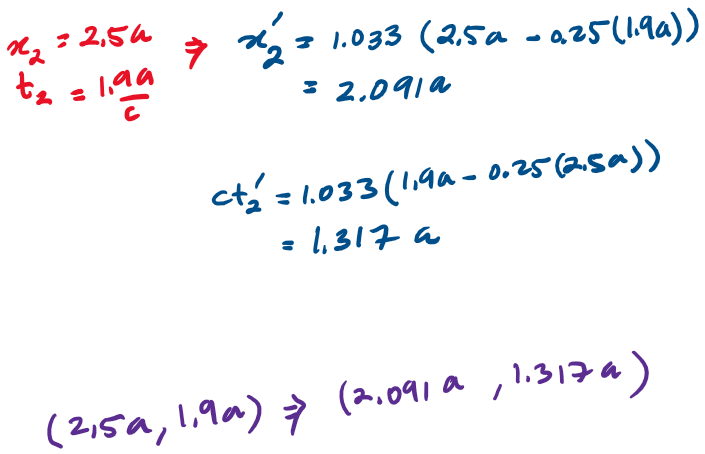 x₂ = 2.5a ⇒ x₂′ = 1.033 (2.5a - 0.25(1.9a))
t₂ = 1.9a/c = 2.091a
ct₂′ = 1.033(1.9a - 0.25(2.5a))
= 1.317 a
(2.5a, 1.9a) ⇒ (2.091a, 1.317a)